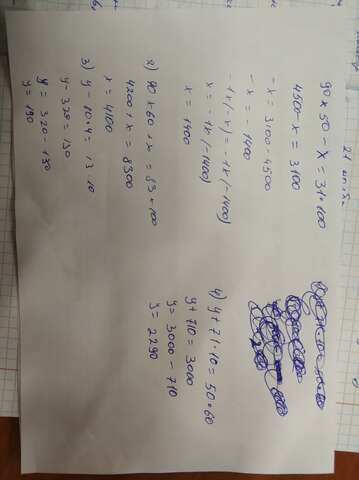 90 × 50 − x = 31 • 100
4500 − x = 3100
− x = 3100 − 4500
− x = − 1400
− 1 × (− x) = − 1 × (− 1400)
x = − 1 × (− 1400)
x = 1400
2) 70 × 60 + x = 83 • 100
4200 + x = 8300
x = 4100
3) y − 80 • 4 = 13 • 10
y − 320 = 130
y = 320 − 130
y = 190
4) y + 71 · 10 = 50 • 60
y + 710 = 3000
y = 3000 − 710
y = 2290